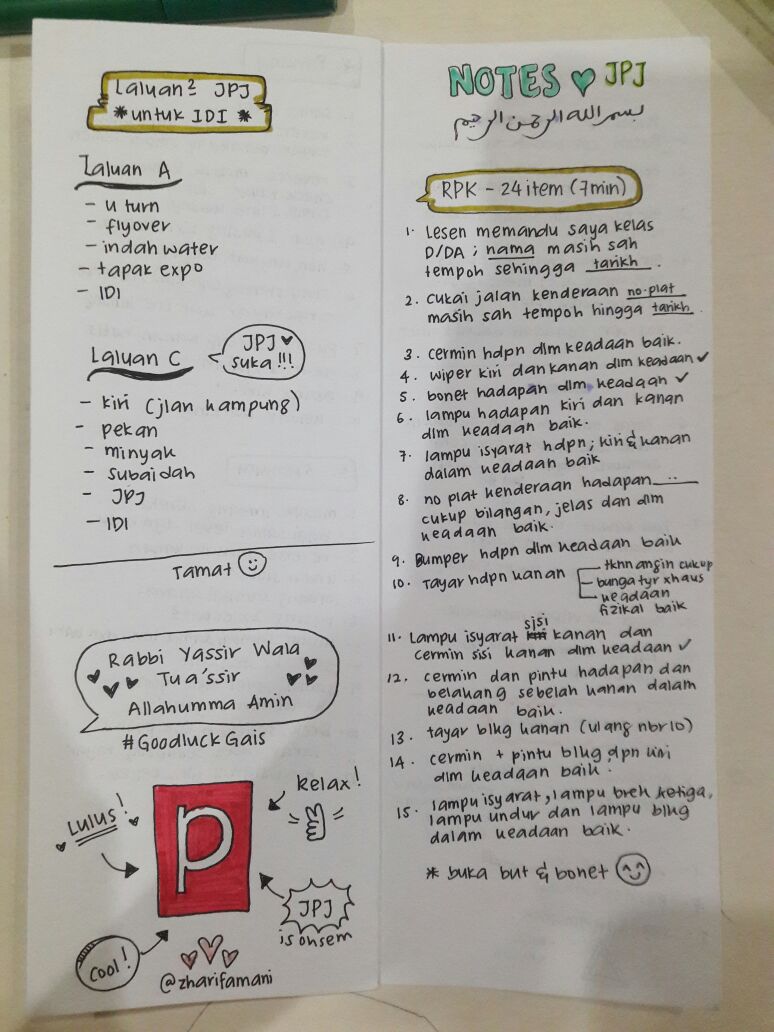 Laluan² JPJ
* untuk IDI *
Laluan A
- u turn
- flyover
- indah water
- tapak expo
- IDI
Laluan C
JPJ ♥
suka!!!
- kiri (jlan kampung)
- pekan
- minyak
- subaidah
- JPJ
- IDI
Tamat ☺
Rabbi Yassir Wala
Tu a'ssir
Allahumma Amin
#GoodluckGais
Lulus!
Relax!
P
JPJ
is ohsem
Cool!
@zharifamani
NOTES ♥ JPJ
بسم الله الرحمن الرحيم
RPK - 24 item (7min)
1. Lesen memandu saya kelas
D/DA ; nama masih sah
tempoh sehingga tarikh.
2. cukai jalan kenderaan no.plat
masih sah tempoh hingga tarikh.
3. cermin hdpn dlm keadaan baik.
4. wiper kiri dan kanan dlm keadaan ✓
5. bonet hadapan dlm keadaan ✓
6. lampu hadapan kiri dan kanan
dlm keadaan baik.
7. lampu isyarat hdpn; kiri & kanan
dalam keadaan baik
8. no plat kenderaan hadapan ___
cukup bilangan, jelas dan dlm
keadaan baik.
9. Bumper hdpn dlm keadaan baik
10. Tayar hdpn kanan - tknn angin cukup
- bunga tyr xhaus
- keadaan
fizikal baik
11. Lampu isyarat sisi kanan dan
cermin sisi kanan dlm keadaan ✓
12. cermin dan pintu hadapan dan
belakang sebelah kanan dalam
keadaan baik.
13. tayar blkg kanan (ulang nbr 10)
14. cermin + pintu blkg, dpn kiri
dlm keadaan baik.
15. lampu isyarat, lampu brek ketiga,
lampu undur dan lampu blkg
dalam keadaan baik.
* buka but & bonet